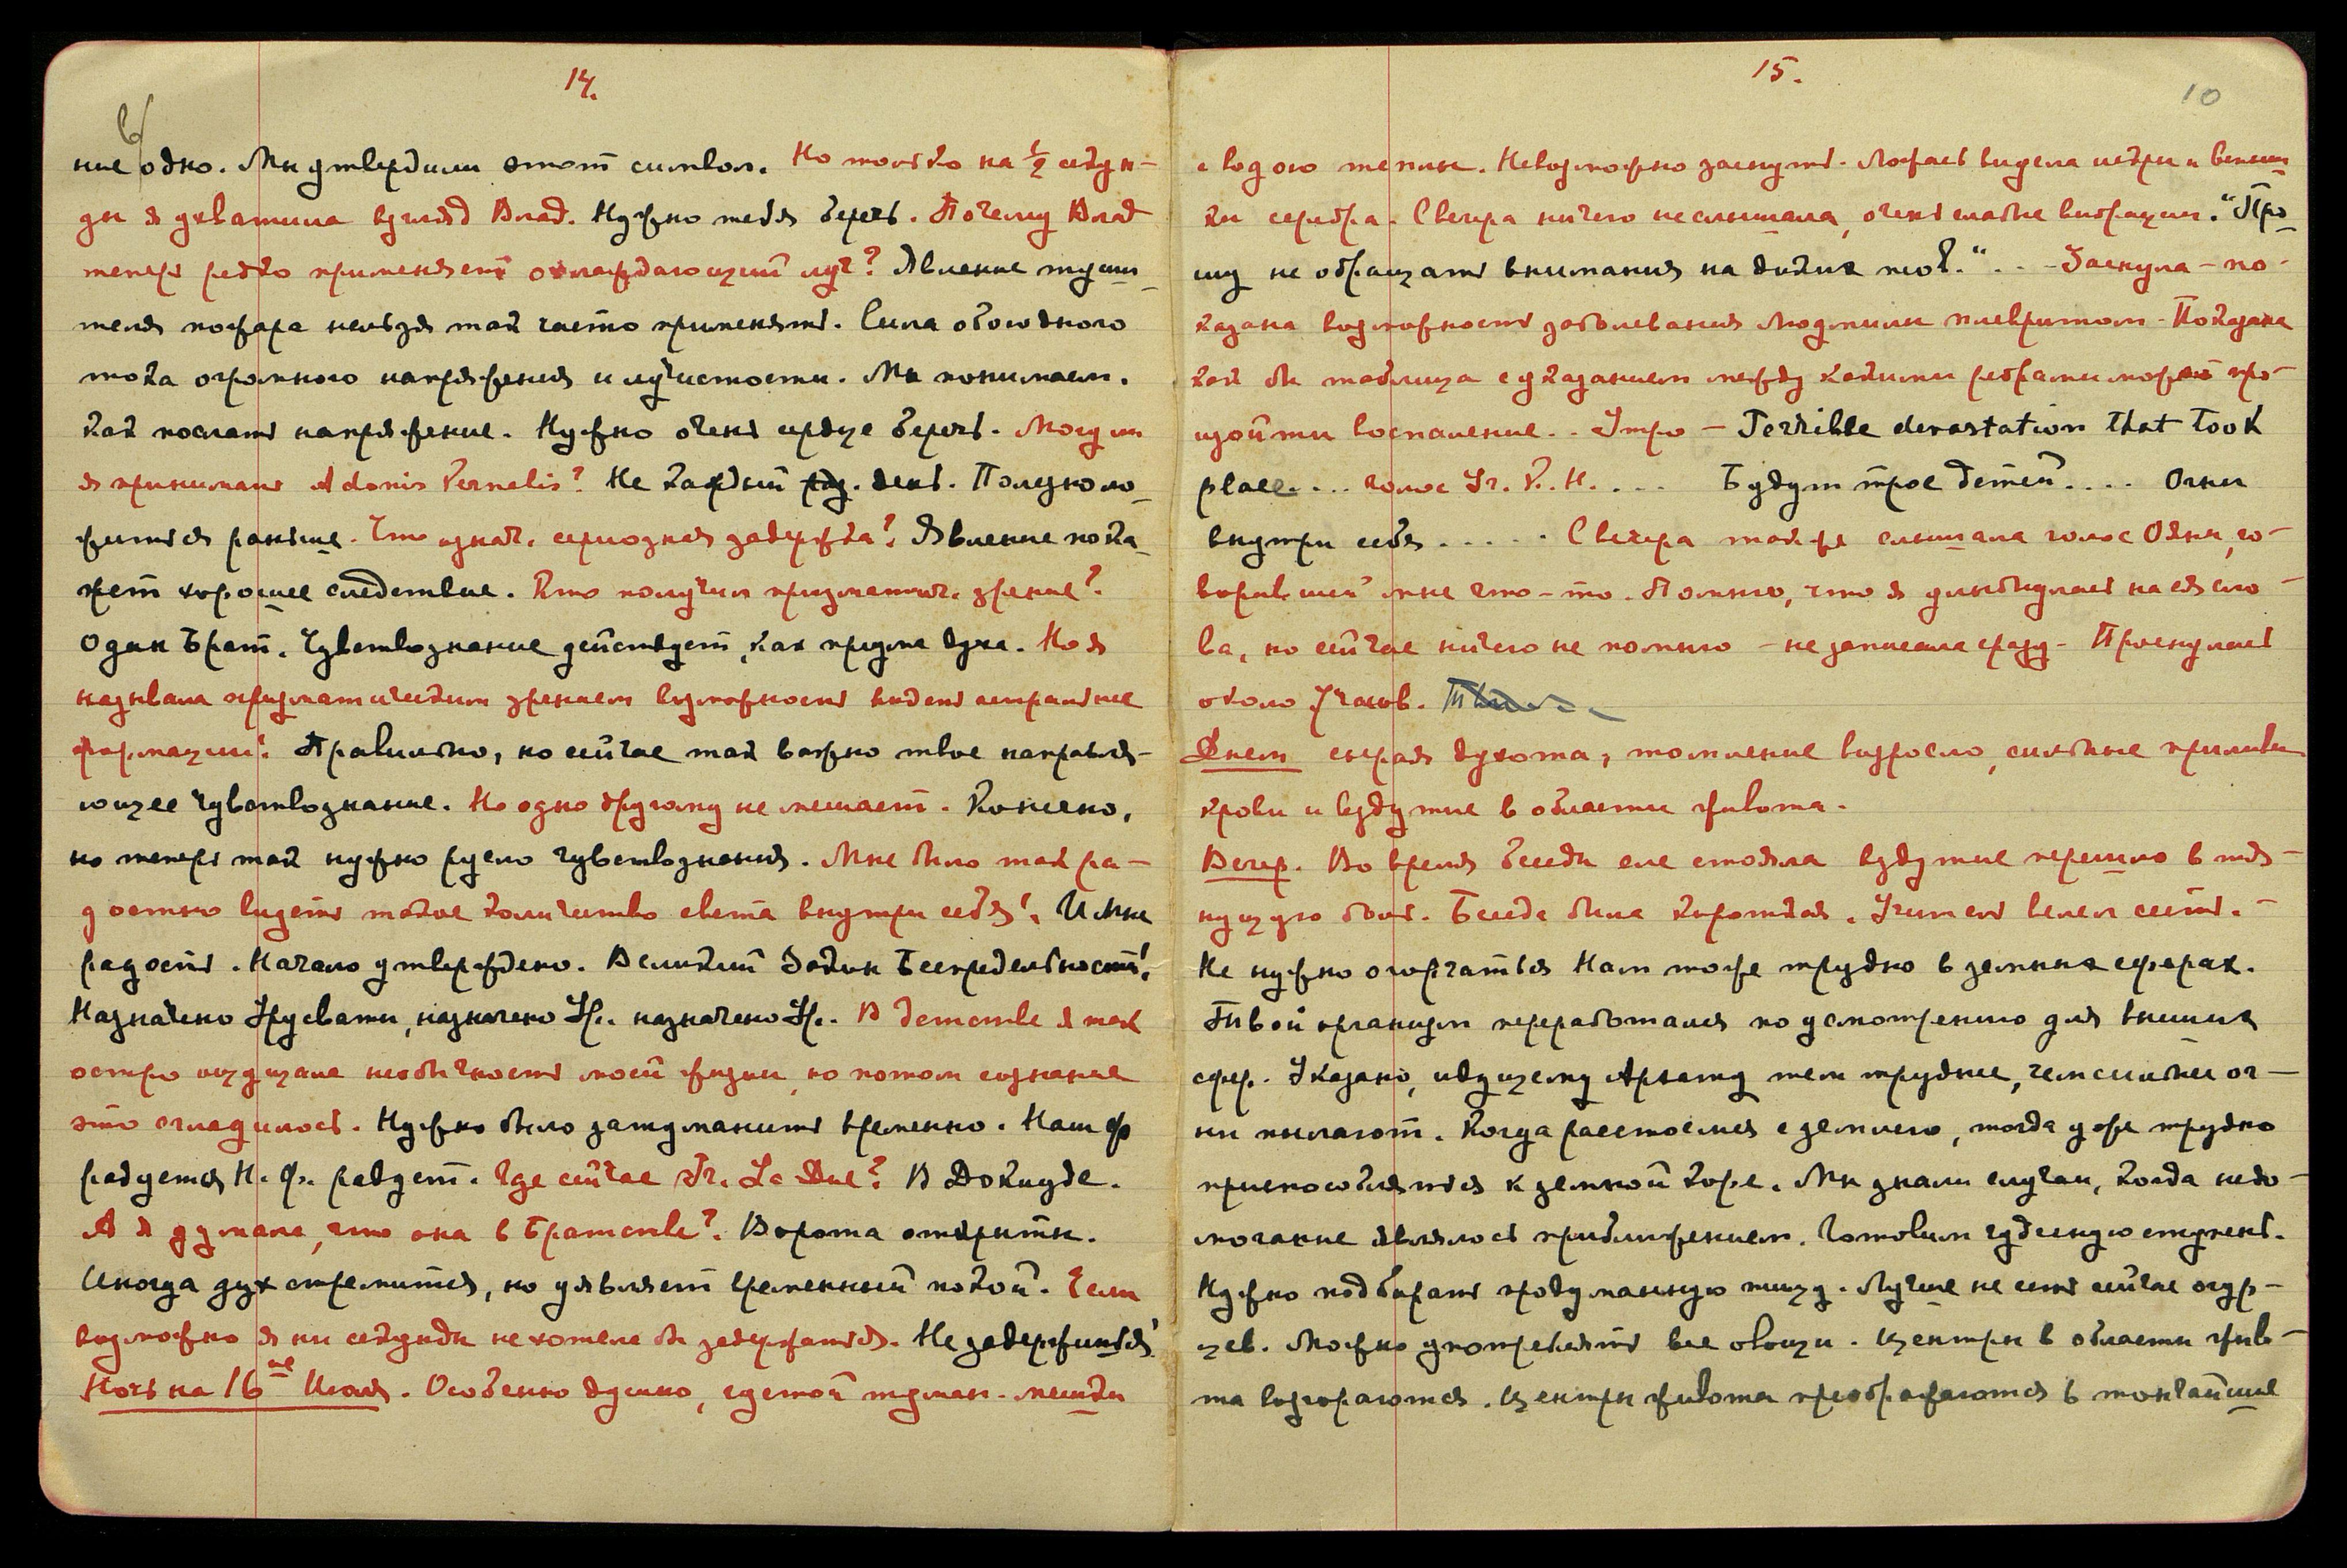 14.
ние одно. Мы утвердили этот символ. Но только на ½ секун-
ды я ухватила взгляд Влад. Нужно тебя беречь. Почему Влад
теперь редко применяет охлаждающий луч? Явление туши-
теля пожара нельзя так часто применять. Сила обоюдного
тока огромного напряжения и лучистости. Мы понимаем,
как послать напряжение. Нужно очень сердце беречь. Могу ли
я принимать Adonis Vernalis? Не каждый день. Полезно ло-
житься раньше. Что означ. серьозная задержка? Явление пока-
жет хорошее следствие. Кто получил призматич. зрение?
Один Брат. Чувствознание действует, как призма духа. Но я
называла призматическим зрением возможность видеть астральные
формации? Правильно, но сейчас так важно твое направля-
ющее чувствознание. Но одно другому не мешает. Конечно,
но теперь так нужно русло чувствознания. Мне было так ра-
достно видеть такое количество света внутри себя! И Мне
радость. Начало утверждено. Великий Закон Беспредельность!
Назначено Урусвати, назначено Ур. назначено Ур. В детстве я так
остро ощущала необычность моей жизни, но потом сознание
это сгладилось. Нужно было затуманить временно. Наш Ф
радуется Н. Ф. радует. Где сейчас Уч. Ло Дие? В Докиуде.
А я думала, что она в Братстве? Ворота открыты.
Иногда дух стремится, но уявляет временный покой. Если
возможно я ни секунды не хотела бы задержаться. Не задержишься!
Ночь на 16ое Июля. Особенно душно, густой туман. мешки
15.
10
с водою теплые. Невозможно заснуть. Ложась видела искры и вспыш-
ки серебра. Свечера ничего не слышала, очень слабые вибрации. "Про-
шу не обращать внимания на диких люд." ... Заснула – по-
казана возможность заболевания Людмилы плевритом – Показана
как бы таблица с указанием между какими ребрами может про-
изойти воспаление. . Утро – Terrible devastation that took
place.... голос Уч. К. Н. .... Будут трое детей.... Огни
внутри себя ..... Свечера также слышала голос Ояны, го-
ворившей мне что-то. Помню, что я улыбнулась на ея сло-
ва, но сейчас ничего не помню – не записала сразу – Проснулась
около 7 часов.
Днем сырая духота, томление возросло, сильные приливы
крови и вздутие в области живота.
Вечер. Во время беседы еле стояла вздутие перешло в тя-
нущую боль. Беседа была короткая. Учитель велел сесть. –
Не нужно огорчаться Нам тоже трудно в земных сферах.
Твой организм переработался по усмотрению для высших
сфер. Указано, идущему Архату тем труднее, чем сильнее ог-
ни пылают. Когда расстоемся с землею, тогда уже трудно
приспособляться к земной коре. Мы знали случаи, когда недо-
могание являлось приближением. Готовим чудесную ступень.
Нужно подбирать продуманную пищу. Лучше не есть сейчас огур-
цев. Можно употреблять все овощи. Центры в области живо-
та возгораются. Центры живота преображаются в тончайшие